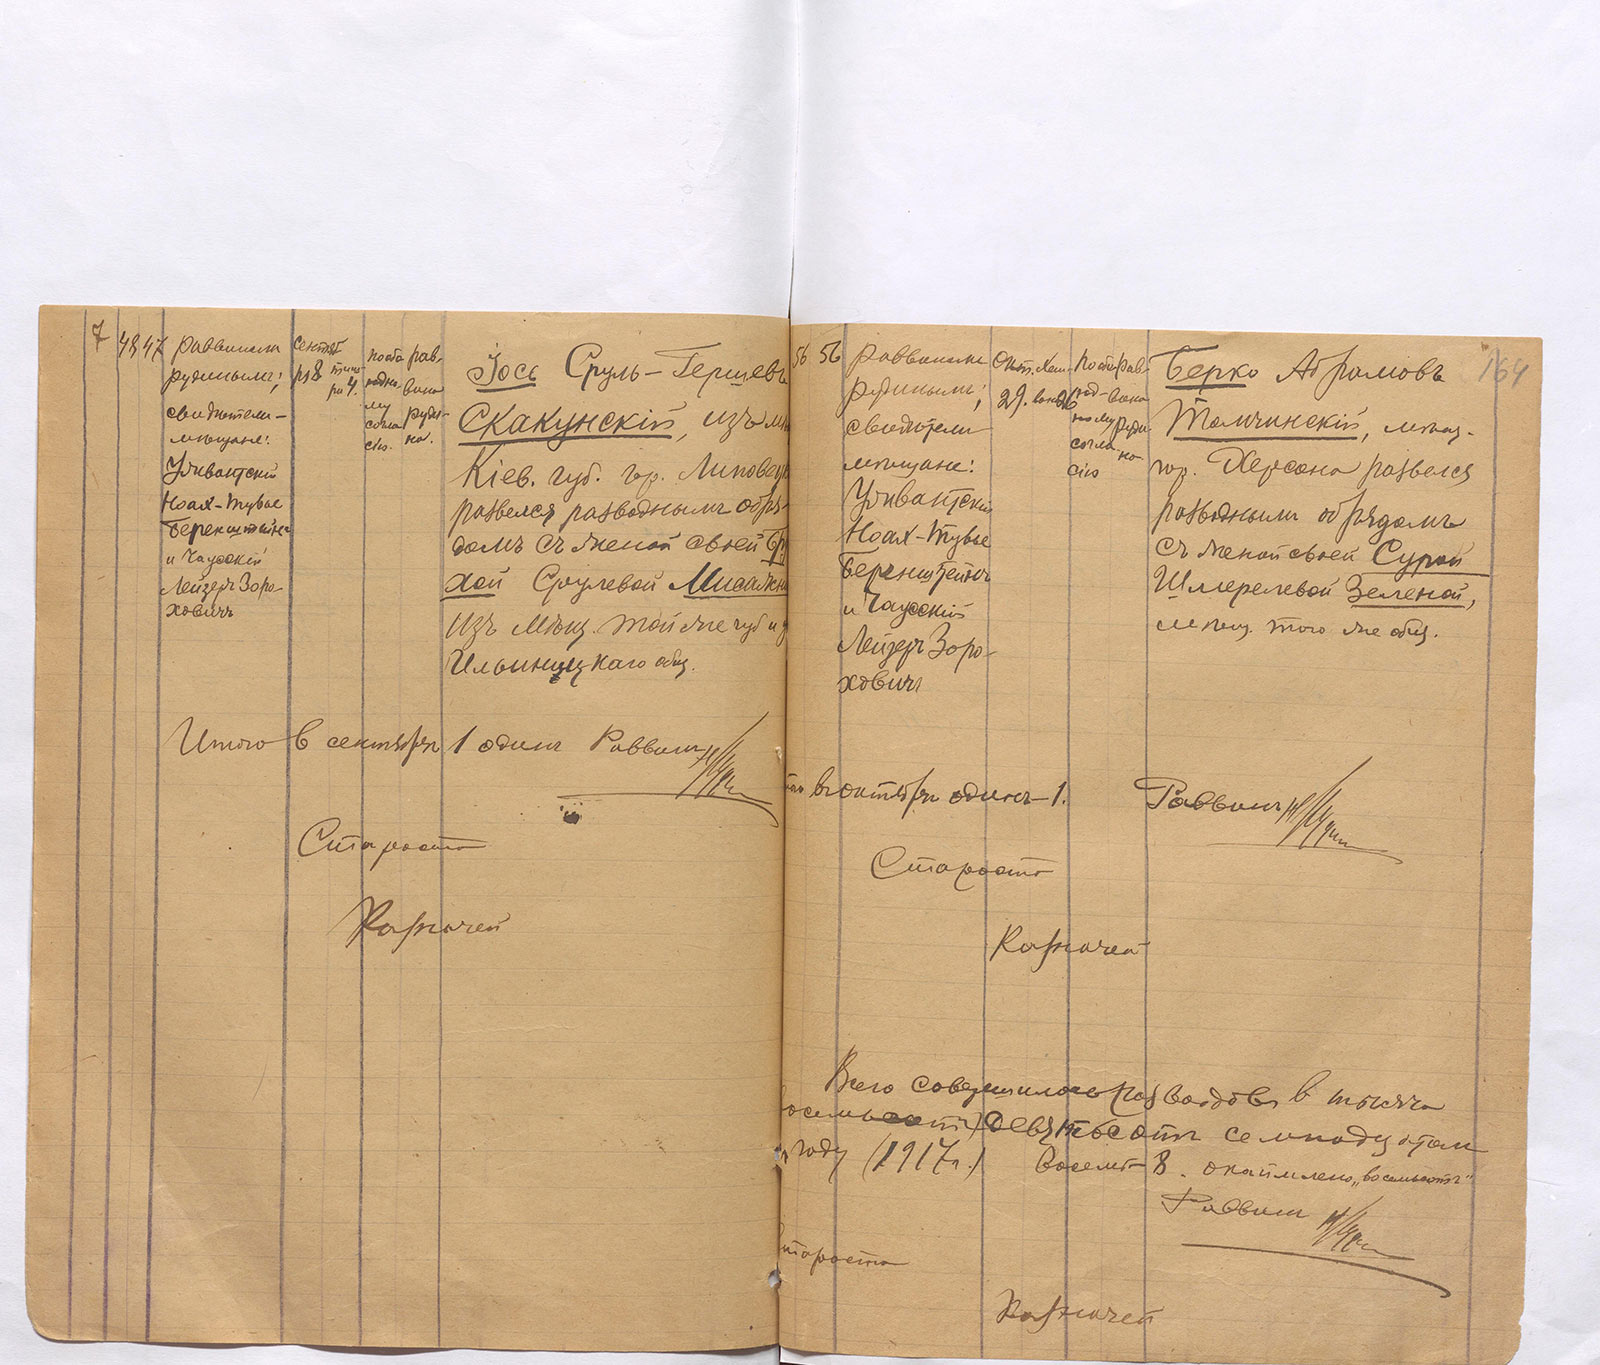 7
48 47
Раввиномъ
Рудинымъ;
свидѣтели-
мѣщане:
Уливатскій
Ноах-Тувье
Беренштейнъ
и Чаусскій
Лейзеръ Зоро-
ховичъ
Сентяб
ря 8
ра 4.
По обо
юдно-
му
согла
сію.
Рав-
вино
Руди-
но.
Іось Сруль-Гершевъ
Скакунскій, изъ
Кіев. губ. гор. Липовец
развелся разводнымъ обря-
домъ съ женой своей
хой Срулевой
изъ мѣщ. той же губ и у
Ильинецкаго общ.
Итого в сентябрѣ 1 один Раввинъ
Староста
Казначей
56 56
Раввиномъ
Рудинымъ;
свидѣтели
мѣщане:
Уливатскій
Ноах-Тувье
Беренштейнъ
и Чаусскій
Лейзеръ Зоро-
ховичъ
Окт.
29.
По обо
юд-
ному
согла
сію
Рав-
вино
Руди
но-
Берко Абрамовъ
Томчинскій, мѣщ.
гор. Херсона развелся
разводнымъ обрядомъ
съ женой своей Сурой
Шмерелевой Зеленой,
мѣщ. того же общ.
164
в октябрѣ одинъ-1. Раввинъ
Староста
Казначей
Всего совершилось разводовъ в тысяча
восемьсот) девятьсотъ семнадцатом
году (1917 г.) восемь-8. окаймлено „восемьсотъ"
Раввинъ
Староста
Казначей